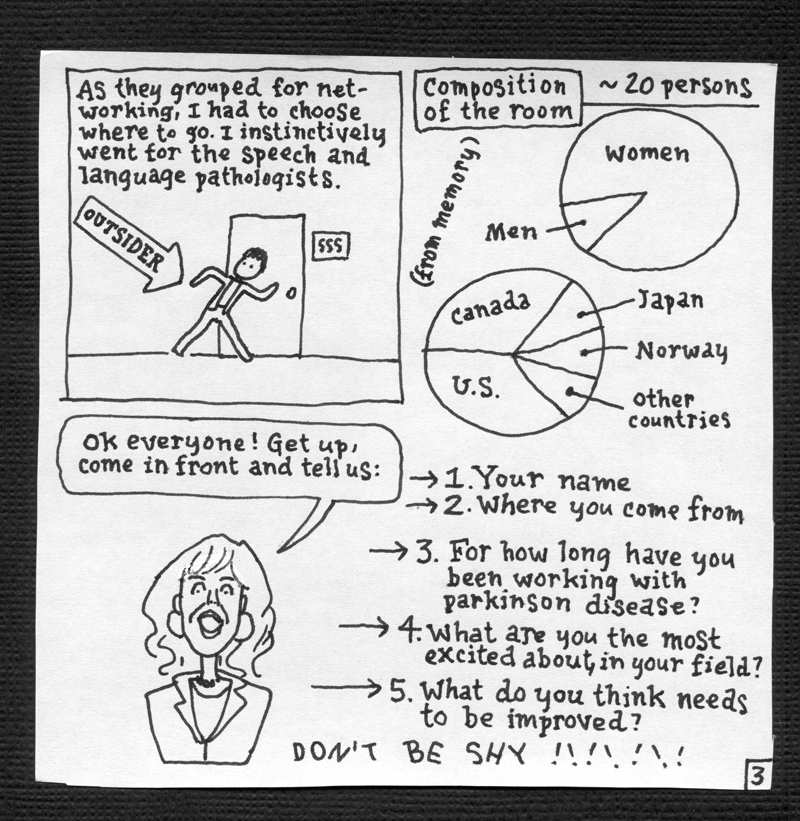 As they grouped for net-
working, I had to choose
where to go. I instinctively
went for the speech and
language pathologists.
OUTSIDER
§§§
Composition
of the room
~ 20 persons
(from memory)
Women
Men
Canada
U.S.
Japan
Norway
other
countries
Ok everyone! Get up,
come in front and tell us:
→ 1. Your name
→ 2. Where you come from
→ 3. For how long have you
been working with
parkinson disease?
→ 4. What are you the most
excited about, in your field?
→ 5. What do you think needs
to be improved?
DON'T BE SHY !!!!!!!
3